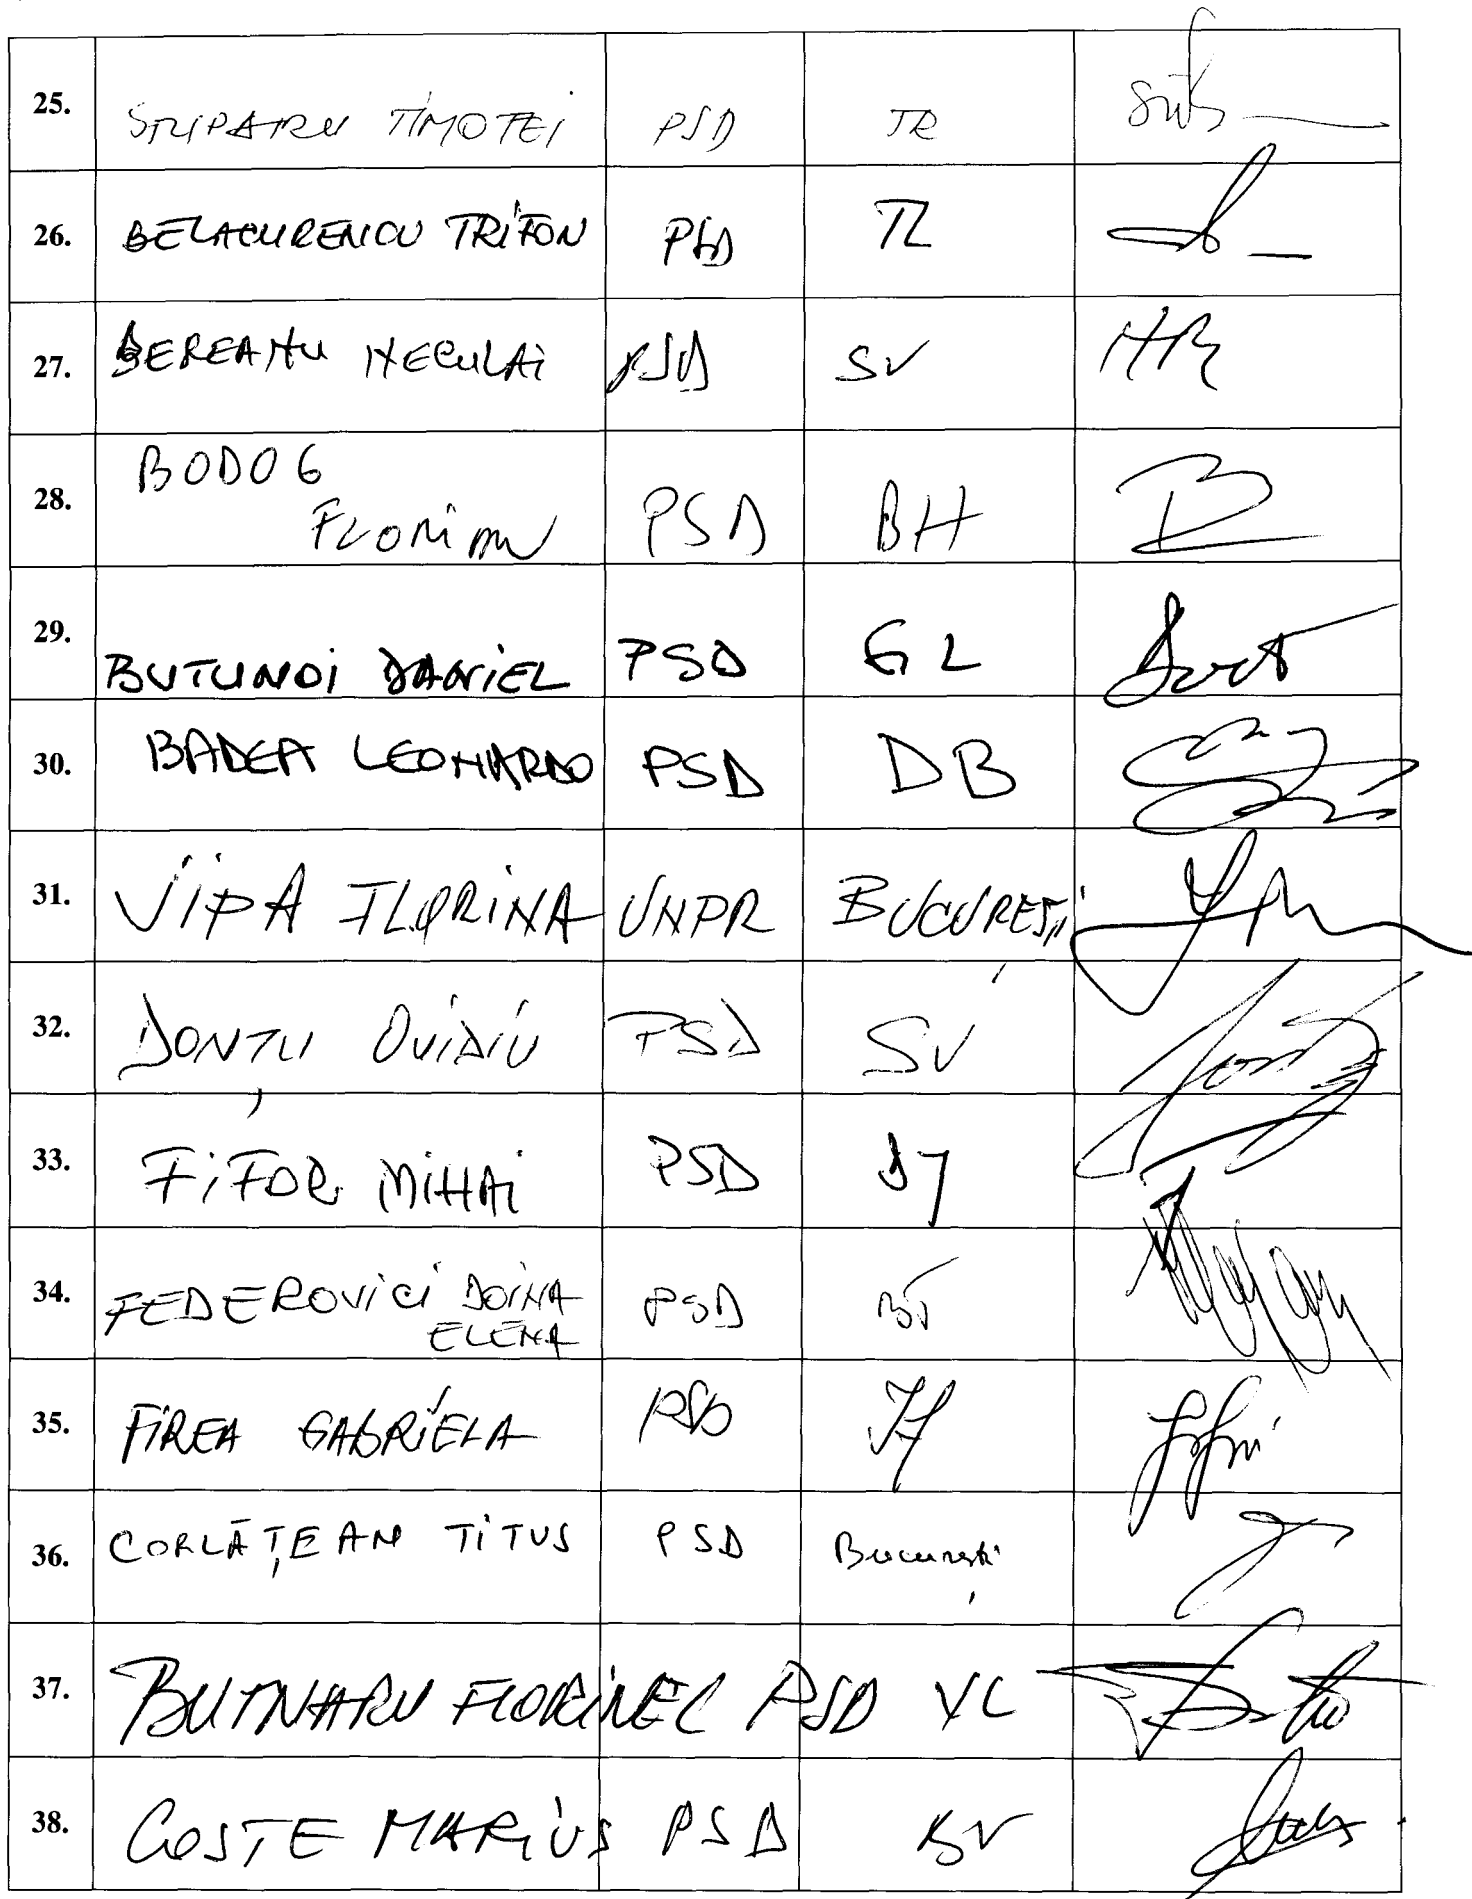 25. STRIPARU TIMOTEI PSD TR
26. BELACURENCU TRIFON PSD TL
27. BEREANU NECULAI PSD SV
28. BODOG
FLORIAN PSD BH
29. BUTUNOI DANIEL PSD GL
30. BADEA LEONARDO PSD DB
31. VIPA FLORINA UNPR BUCUREȘTI
32. DONȚU OVIDIU PSD SV
33. FIFOR MIHAI PSD DJ
34. FEDEROVICI DOINA
ELENA PSD BT
35. FIREA GABRIELA PSD IF
36. CORLĂȚEAN TITUS PSD București
37. BUTNARU FLORINEL PSD VL
38. COSTE MARIUS PSD BV